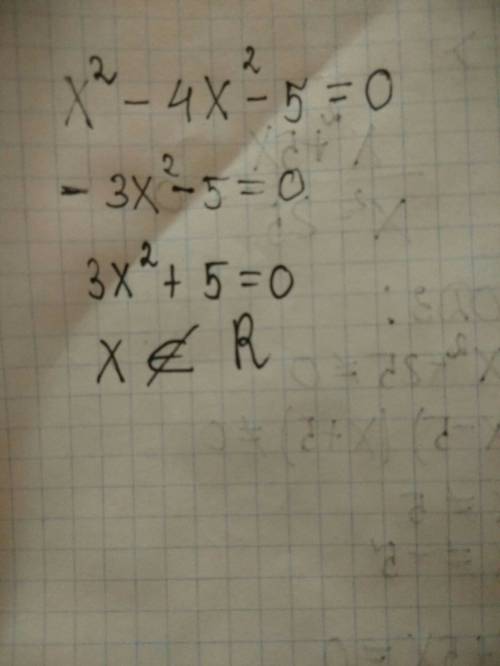 x² - 4x² - 5 = 0
- 3x² - 5 = 0
3x² + 5 = 0
x ∉ R